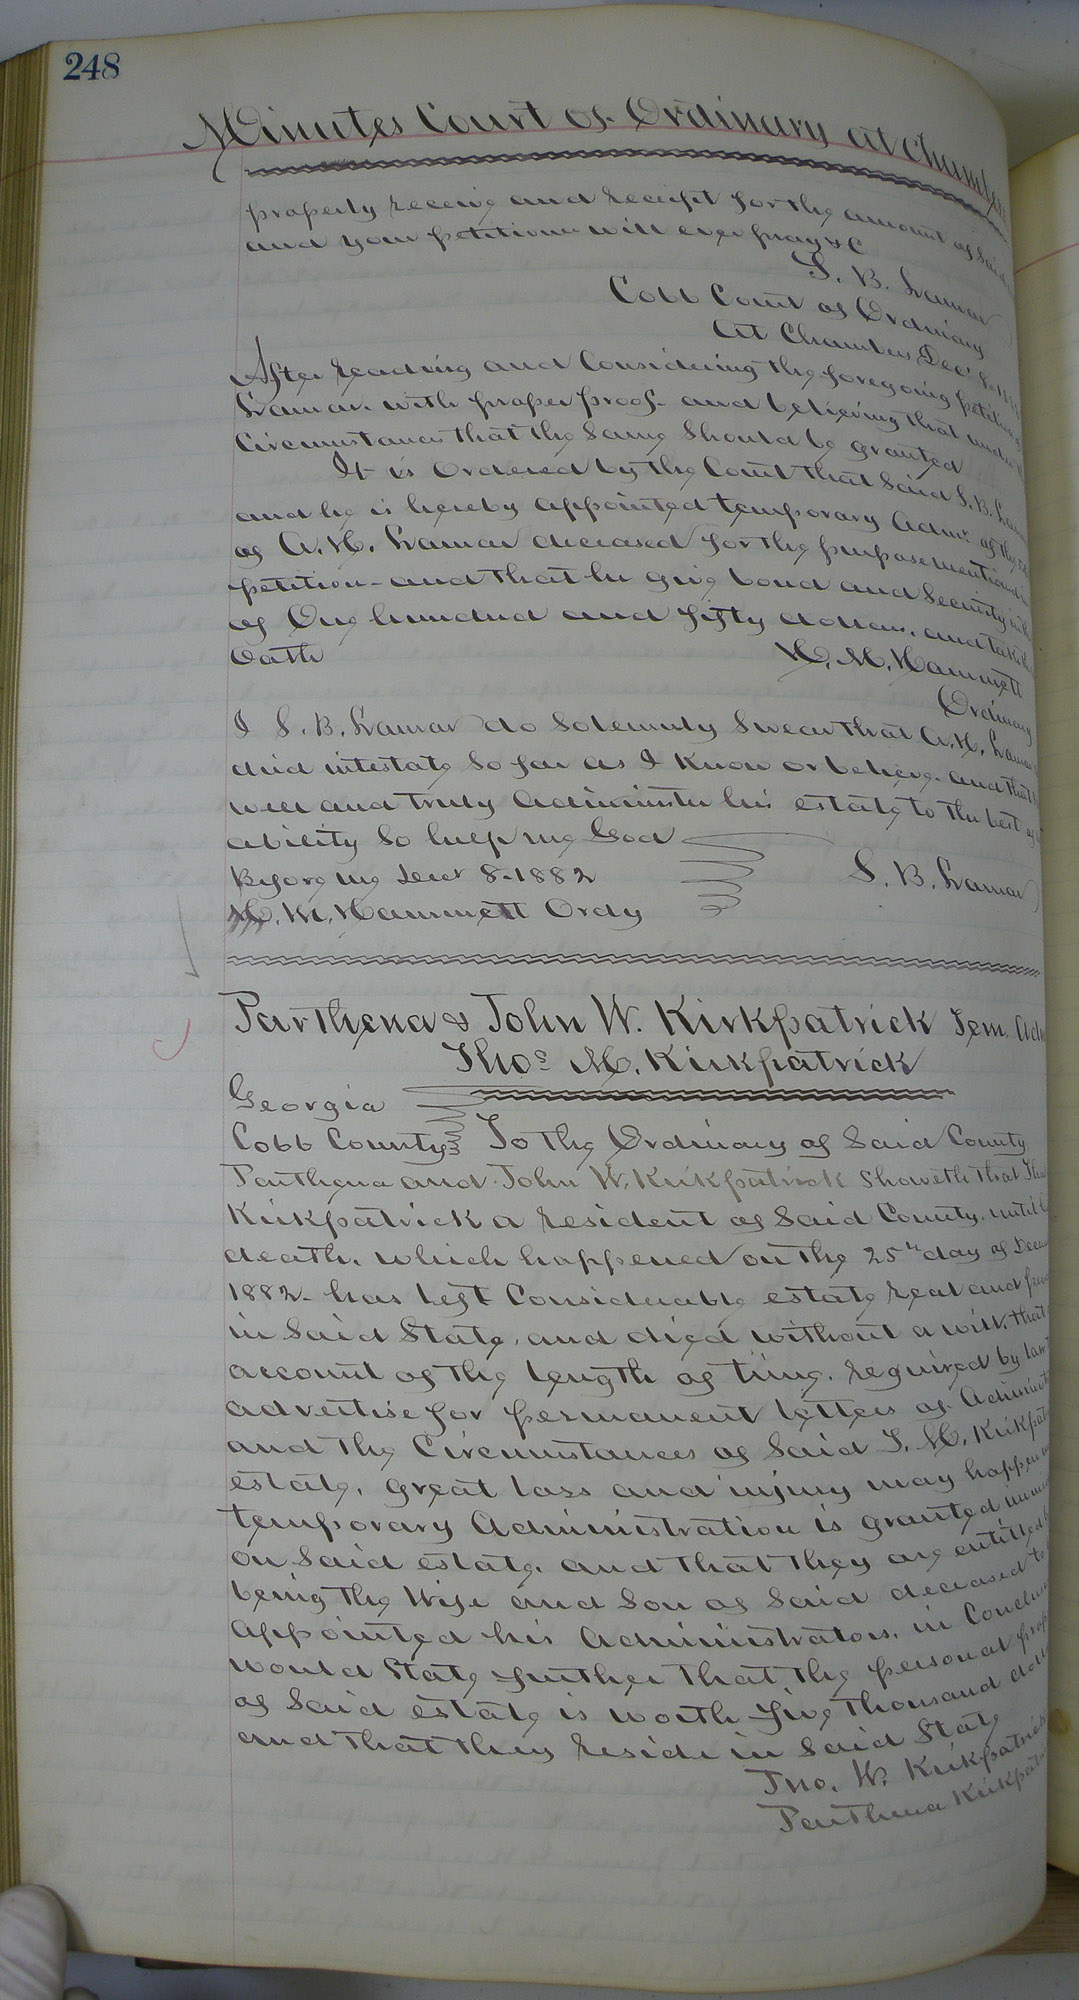 248
Minutes Court of Ordinary at Chambers
properly receive and receipt for the amount of said
and your petitioner will ever pray &c
S. B. Lamar
Cobb Court of Ordinary
At Chambers Decr 8. 188
After reading and Considering the foregoing petition of
Lamar. with proper proof. and believing that under
Circumstances that the Same Should be granted
It is Ordered by the Court that Said S. B. Lamar
and he is hereby appointed temporary Admr. of the
of A. H. Lamar deceased for the purpose mentioned in
petition - and that he give bond and Security in the
of One hundred and fifty dollars. and take the
Oath H. M. Hammett
Ordinary
I S. B. Lamar do Solemnly Swear that A. H. Lamar
died intestate So far as I Know or believe. and that
well and truly Administer his estate to the best of
ability So help me God
Before me Decr 8. 1882 S. B. Lamar
H. M. Hammett Ordy
Parthena & John W. Kirkpatrick Tem. Adm
Thos M. Kirkpatrick
Georgia
Cobb County To the Ordinary of Said County
Parthena and John W. Kirkpatrick Showeth that Tho
Kirkpatrick a resident of Said County. until
death. which happened on the 25th day of Decem
1882 - has left Considerable estate real and
in Said State, and died without a will. that
account of the length of time. required by law
advertise for permanent letters of Administ
and the Circumstances of Said T. M. Kirkpat
estate. great loss and injury may happen
temporary Administration is granted
on Said estate. and that they are entitled
being the Wife and Son of Said deceased to
appointed his Administrators. in Conclu
would State further that the personal prop
of Said estate is worth five thousand doll
and that they reside in Said State
Jno. W. Kirkpatrick
Parthena Kirkpat